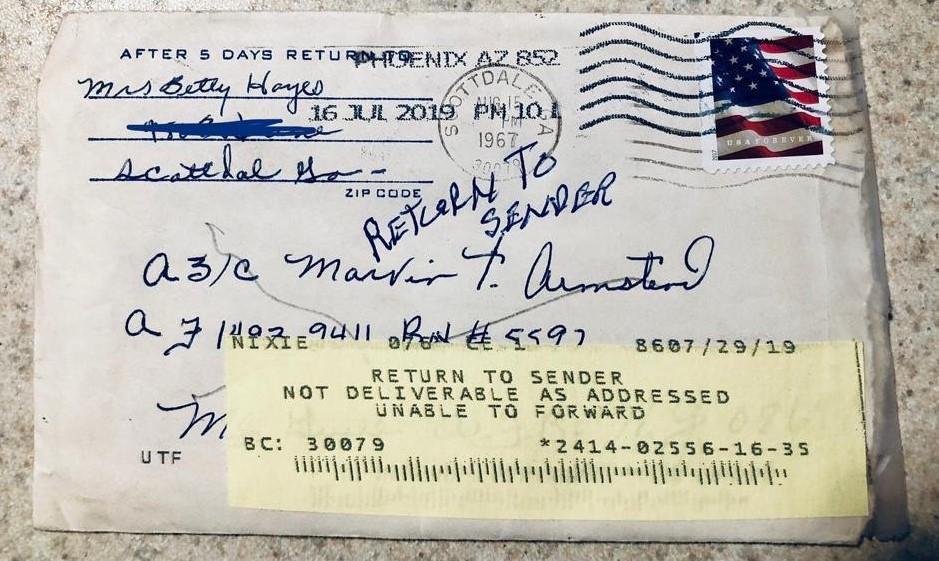 AFTER 5 DAYS RETURN TO
PHOENIX AZ 852
Mrs Betty Hayes
16 JUL 2019 PM 10 L
SCOTTDALE
AUG 15
PM
1967
Scottdal Ga-
ZIP CODE
USA FOREVER
RETURN TO
SENDER
A3/C Marvin T. Armstend
NIXIE
8607/29/19
RETURN TO SENDER
NOT DELIVERABLE AS ADDRESSED
UNABLE TO FORWARD
UTF
BC: 30079 *2414-02556-16-35